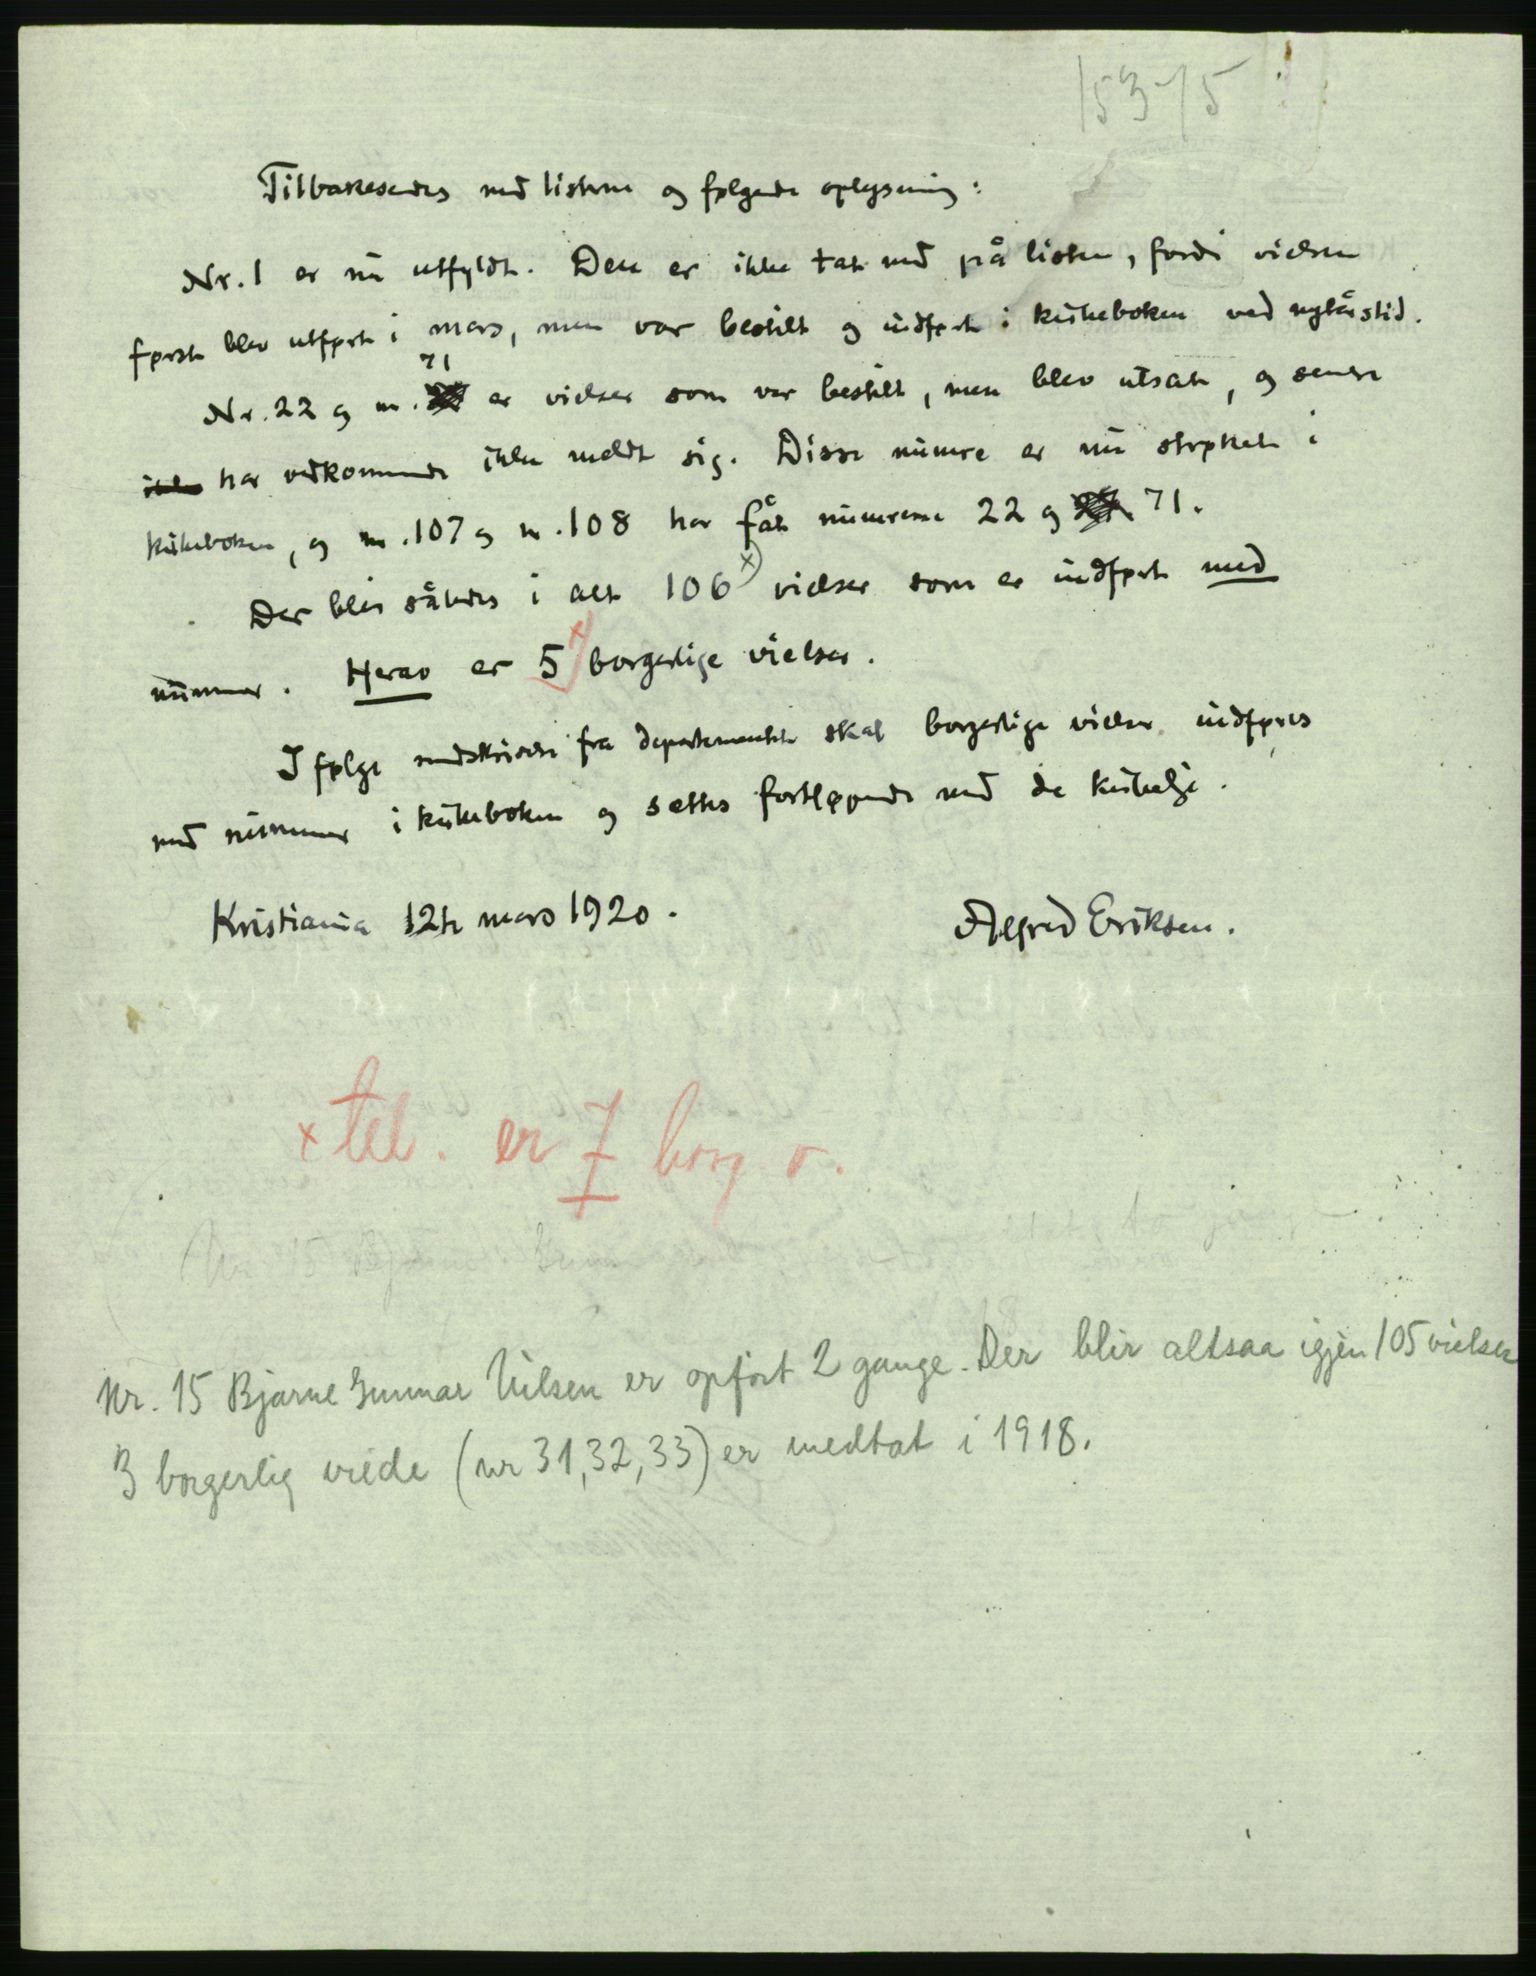 153-15
Tilbakesendes med listene og følgende oplysning:
Nr. 1 er nu utfyldt. Den er ikke tat med på listen, fordi vielsen
først blev utført i mars, men var bestilt og indført i kirkeboken ved nytårstid.
71
Nr. 22 og nr. er vielser som var bestilt, men blev utsat, og senere
ikke har vedkommende ikke meldt sig. Disse numre er nu strøket i
kirkeboken, og nr. 107 og nr. 108 har fåt numrene 22 og 71.
Der blir således i alt 106 x) vielser som er indført med
nummer. Herav er 5 x) borgerlige vielser.
Ifølge rundskrivelse fra departementet skal borgerlige vielser indføres
med nummer i kirkeboken og sættes fortløpende med de kirkelige.
Kristiania 12te mars 1920. Alfred Eriksen.
x tel. er 7 borg. v.
Nr. 15 Bjarne Gunnar Nilsen er opført 2 gange. Der blir altsaa igjen 105 vielser
3 borgerlig viede (nr 31, 32, 33) er medtat i 1918.